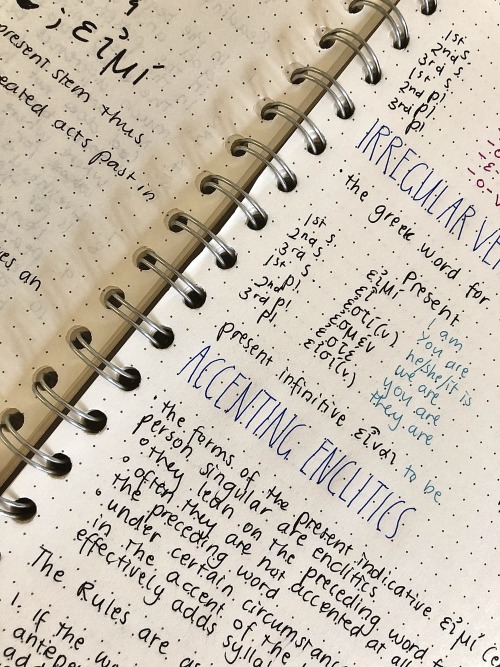 ; εἰμί
present stem thus
eated acts past in
es an
1st s.
2nd s.
3rd s.
1st pl.
2nd pl.
3rd pl.
IRREGULAR VE
• the greek word for
Present
1st s. εἰμί I am
2nd s. εἶ You are
3rd s. ἐστί(ν) he/she/it is
1st pl. ἐσμέν we are
2nd pl. ἐστέ you are
3rd pl. εἰσί(ν) they are
present infinitive εἶναι to be
ACCENTING ENCLITICS
• the forms of the present indicative εἰμί (e
person singular are enclitics
• they lean on the preceding word
• often they are not accented at
the preceding word is
• under certain circumstan
in the accent of the
effectively adds sylla
The Rules are a
1. if the w
antepe
ad